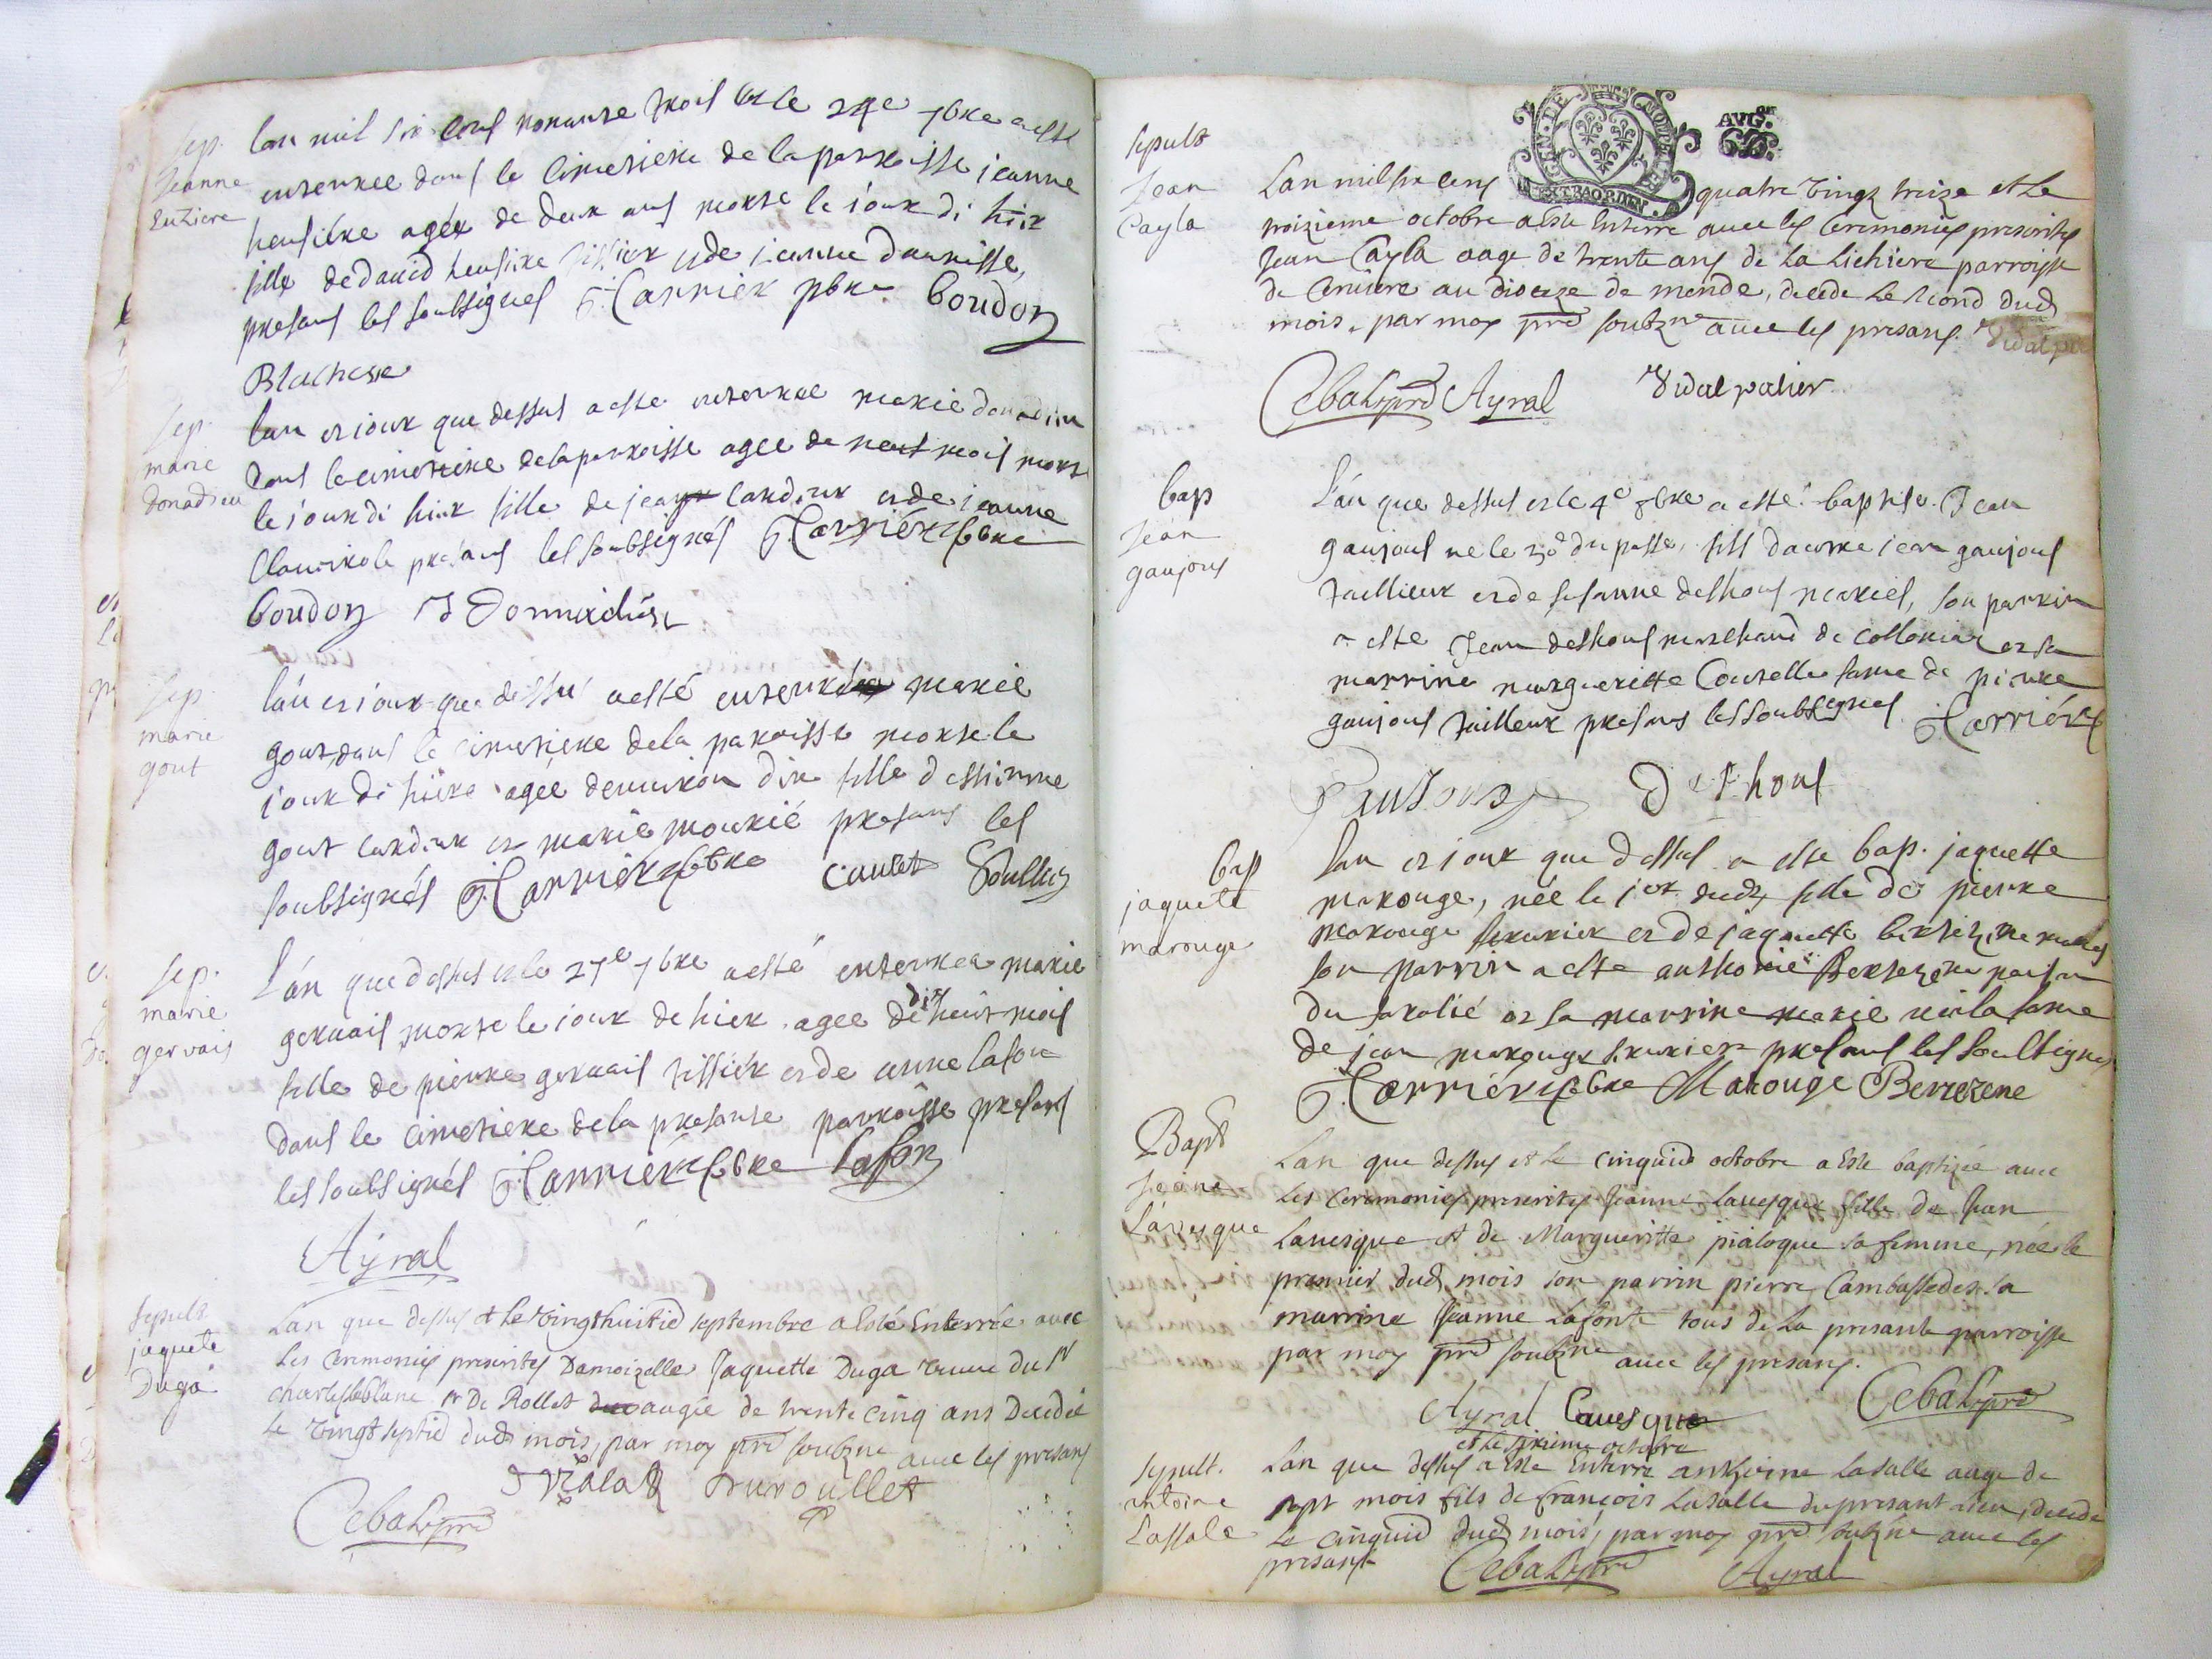 Sep.
Jeanne
Euziere
lan mil six cens nonante trois et le 24e 7bre a esté
enterree dans le cimetiere de la parroisse jeanne
heusiere agée de deux ans morte le jour di hier
fille de david heusiere tissier et de jeanne
presans les soubsignes Carrier pbre Boudon
Sep.
marie
donadieu
lan et jour que dessus a esté enterree marie donadieu
dans le cimetiere de la parroisse agee de neuf mois morte
le jour di hier fille de jean cardeur et de jeanne
presans les soubsignés Carrière pbre
Boudon
Sep.
marie
gout
lan et jour que dessus a esté enterrée marie
gout dans le cimetiere de la paroisse morte le
jour di hiere agée denviron dix fille destienne
gout cardeur et marie mourié presans les
soubsignés Carrière pbre Caulet
Sep.
marie
gervais
L'an que dessus et le 27e 7bre a esté enterree marie
gervais morte le jour de hier agee de dix huit mois
fille de pierre gervais tissier et de anne lafon
dans le cimetiere de la presente parroisse presans
les soubsignés Carrière pbre Lafon
Ayral
Sepult
jaquete
Duga
Lan que dessus et le vingthuitie septembre a esté Enterrée avec
Les Ceremonies prescrites Damoizelle Jaquette Duga veuve du Sr
Charles leblanc Sr De Rollet augée de trente cinq ans Decedée
Le vingt septie dud mois, par moy pre soubzne avec les presans
Duroullet
Sepult
Jean
Cayla
GEN. DE MONTPELLIER
EXTRAORDIN.
AVG.on
Lan mil six cens quatre vingt treize et Le
troizieme octobre a esté Enterre avec les Ceremonies prescrites
Jean Cayla aage de trente ans de La Lichiere parroisse
de au dioceze de mende, decede Le second dud
mois, par moy pre soubzne avec les presans.
Ayral Vidal
bap
Jean
gaujous
L'an que dessus et le 4e 8bre a esté baptise Jean
gaujous ne le du passe, fils dautre jean gaujous
taillieur et de susanne deshous maries, son parrin
a esté Jean deshous marchand de et sa
marrine margueritte fame de pierre
gaujous tailleur presans les soubsignes Carrière
Deshous
bap
jaquete
marouge
lan et jour que dessus a esté bap. jaquette
marouge, née le jer dud, fille de pierre
marouge serurier et de jaquette maries
son parrin a esté anthoine
du et sa marrine marie fame
de jean marouge serurier presans les soubsignes
Carrière pbre Marouge Berrezene
Bapt
Jeane
Lavesque
Lan que dessus et le cinquie octobre a esté baptizée avec
Les Ceremonies prescrites Jeanne lavesque fille de Jean
Lavesque et de Margueritte pialoque sa femme, née le
premier dud mois son parrin pierre Cambassedes sa
marrine Jeanne Lafonte tous de La presante parroisse
par moy pre soubzne avec les presans.
Ayral Lavesque
Sepult.
antoine
Lassale
et le sixieme octobre
Lan que dessus a esté Enterre anthoine Lasalle aage de
sept mois fils de françois Lasalle du presant lieu, decede
Le cinquie dud mois, par moy pre soubzne avec les
presans
Ayral